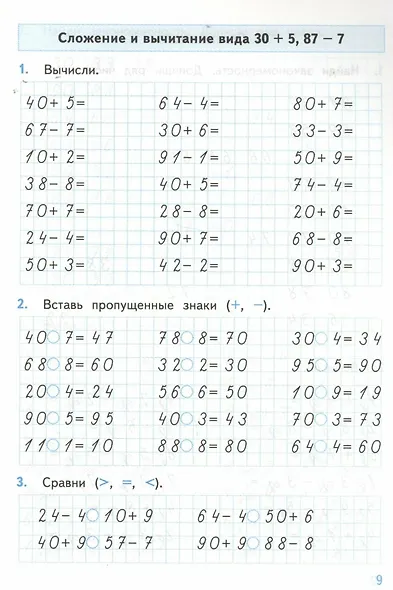 Сложение и вычитание вида 30 + 5, 87 − 7
1. Вычисли.
40+5= 64−4= 80+7=
67−7= 30+6= 33−3=
10+2= 91−1= 50+9=
38−8= 40+5= 74−4=
70+7= 28−8= 20+6=
24−4= 90+7= 68−8=
50+3= 42−2= 90+3=
2. Вставь пропущенные знаки (+, −).
40○7=47 78○8=70 30○4=34
68○8=60 32○2=30 95○5=90
20○4=24 56○6=50 10○9=19
90○5=95 40○3=43 70○3=73
11○1=10 88○8=80 64○4=60
3. Сравни (>, =, <).
24−4○10+9 64−4○50+6
40+9○57−7 90+9○88−8
9